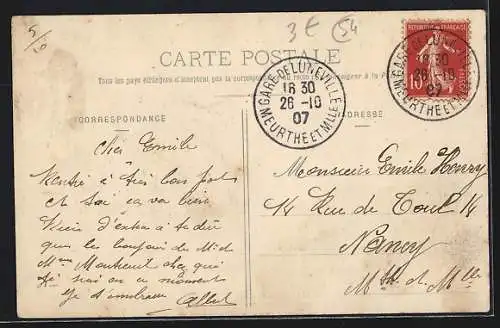 3€ 54
CARTE POSTALE
Tous les pays étrangers n'acceptent pas la correspondance au recto
CORRESPONDANCE
ADRESSE
GARE DE LUNÉVILLE
16 30
26 -10
07
MEURTHE ET MLLE
GARE DE LUNÉVILLE
16 30
26 -10
07
MEURTHE ET MLLE
10
Cher Emile
Rentré à très bon port
et toi ça va bien
Rien d'extra à te dire
que le bonjour de Mr et
Mme chez qui
je suis en ce moment
Je t'embrasse Albert
Monsieur Emile Henry
14 Rue de Toul 14
Nancy
Mthe et Mlle